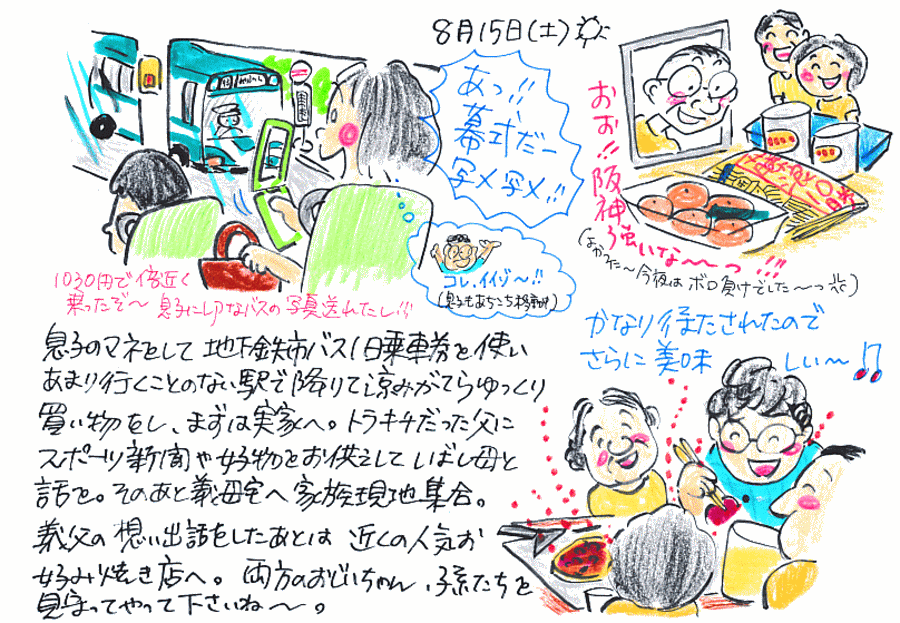 8月15日(土)
あっ!!
幕式だー
写メ写メ!!
おお!!阪神
強いな〜〜っ!!!
(今夜はボロ負けでした〜っ
コレ、イイゾ〜!!
(息子もあちこち移動中)
1030円で倍近く
乗ったぞ〜 息子にレアなバスの写真送れたし!!
かなり待たされたので
さらに美味しい〜♫
息子のマネをして 地下鉄市バス1日乗車券を使い
あまり行くことのない駅で降りて涼みがてらゆっくり
買い物をし、まずは実家へ。トラキチだった父に
スポーツ新聞や好物をお供えして しばし母と
話を。そのあと義母宅へ 家族現地集合。
義父の想い出話をしたあとは 近くの人気お
好み焼き店へ。両方のおじいちゃん、孫たちを
見守ってやって下さいね〜。